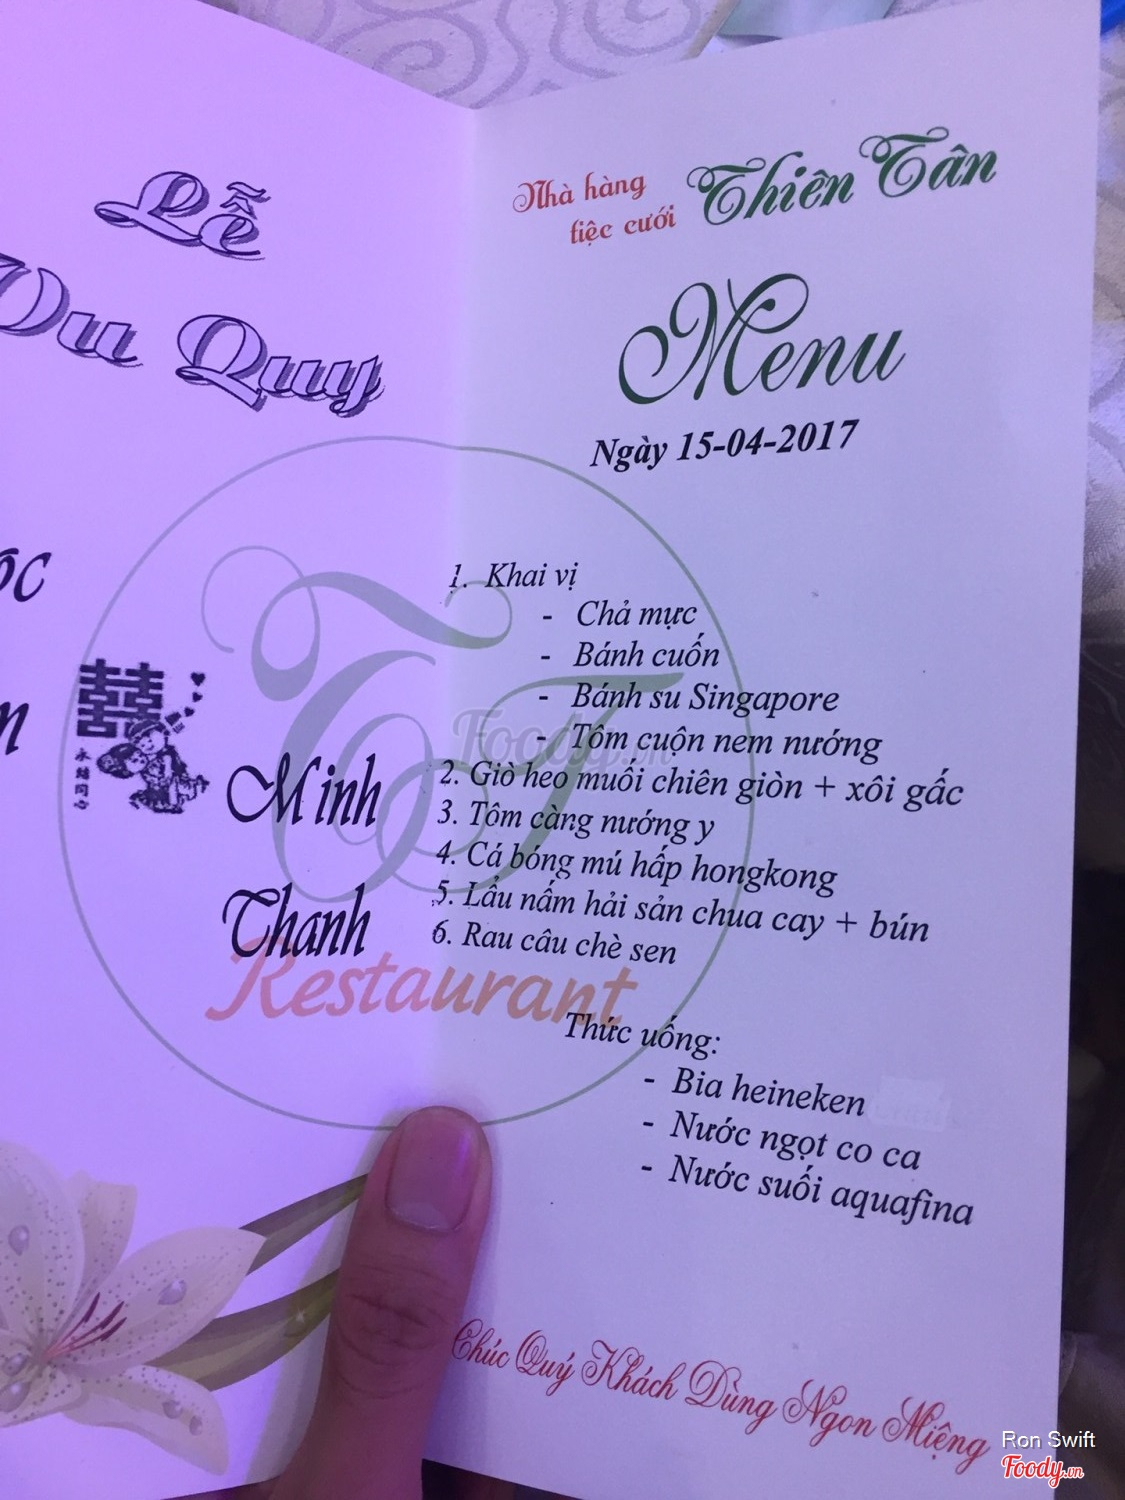 Lễ
Vu Quy
Minh
Thanh
Restaurant
Nhà hàng
tiệc cưới
Thiên Tân
Menu
Ngày 15-04-2017
1. Khai vị
- Chả mực
- Bánh cuốn
- Bánh su Singapore
- Tôm cuộn nem nướng
2. Giò heo muối chiên giòn + xôi gấc
3. Tôm càng nướng y
4. Cá bóng mú hấp hongkong
5. Lẩu nấm hải sản chua cay + bún
6. Rau câu chè sen
Thức uống:
- Bia heineken
- Nước ngọt co ca
- Nước suối aquafina
Chúc Quý Khách Dùng Ngon Miệng
Foody.vn
Ron Swift
Foody.vn